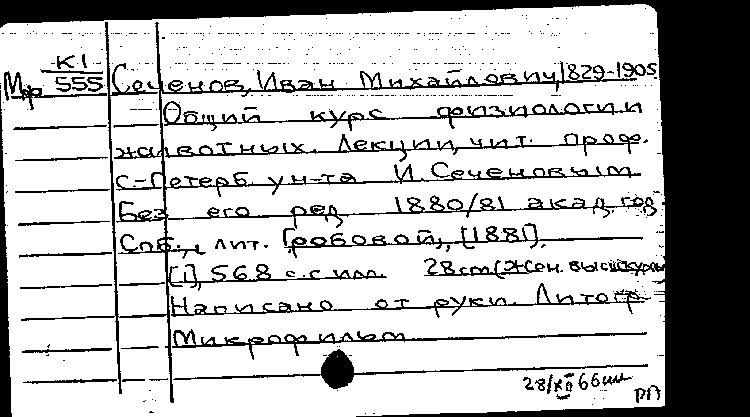 К1
Мф 555 Сеченов, Иван Михайлович, 1829-1905
Общий курс физиологии
животных. Лекции, чит. проф.
с-Петерб ун-та И. Сеченовым
Без его ред 1880/81 акад. год.
Спб., лит. Гробовой, [1881].
[1], 568 с. с илл. 28 cm (Жен. высш. курсы
Написано от руки. Литогр.
Микрофильм
28/XII 66
РП